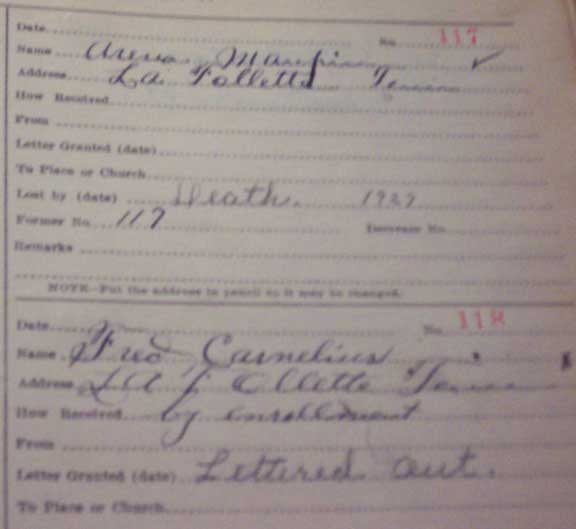 Date
No. 117
Name Arena Maupin ✓
Address La Follette Tenn
How Received
From
Letter Granted (date)
To Place or Church
Lost by (date) Death. 1927
Former No. 117 Increase No.
Remarks
NOTE—Put the address in pencil so it may be changed.
Date No. 118
Name Fred Carnelius
Address LA f Ollette Tenn
How Received by enrollment
From
Letter Granted (date) Lettered out.
To Place or Church